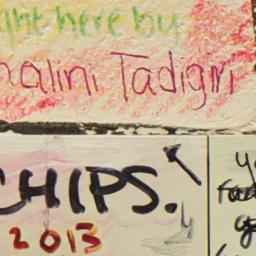 ght here by
halini Tadigiri
CHIPS.
2013